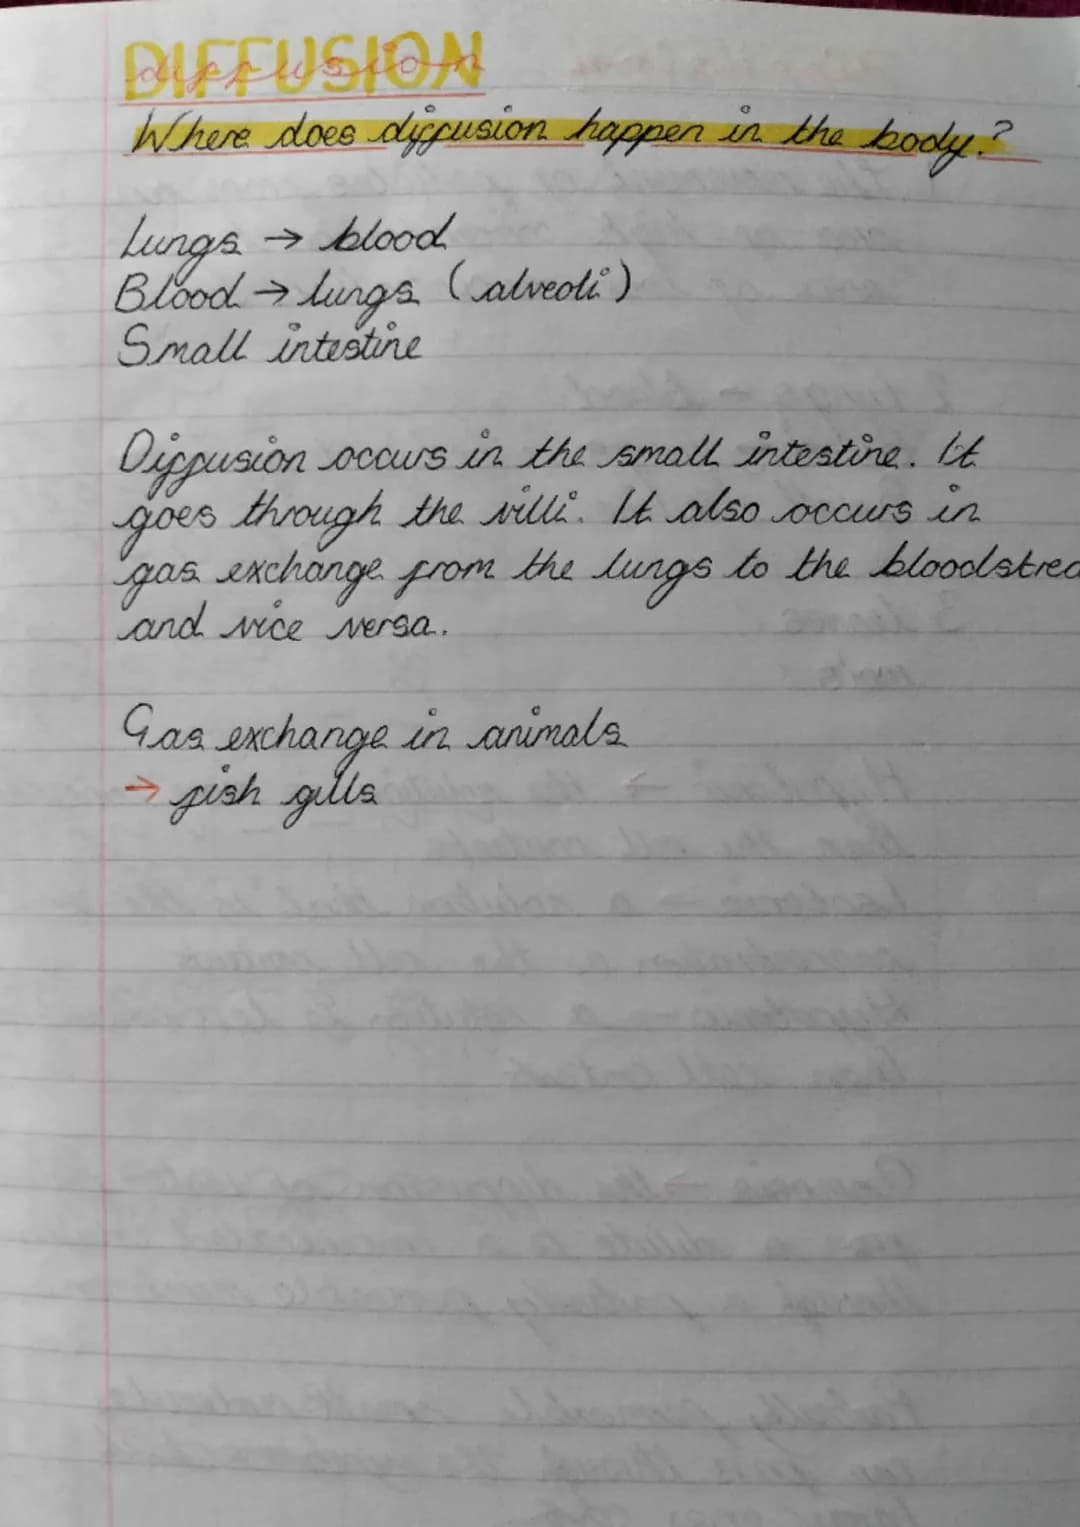 DIFFUSION
diffusion
Where does diffusion happen in the body?
Lungs → blood
Blood → lungs (alveoli)
Small intestine
Diffusion occurs in the small intestine. It
goes through the villi. It also occurs in
gas exchange from the lungs to the bloodstrea
and vice versa.
Gas exchange in animals
→ fish gills